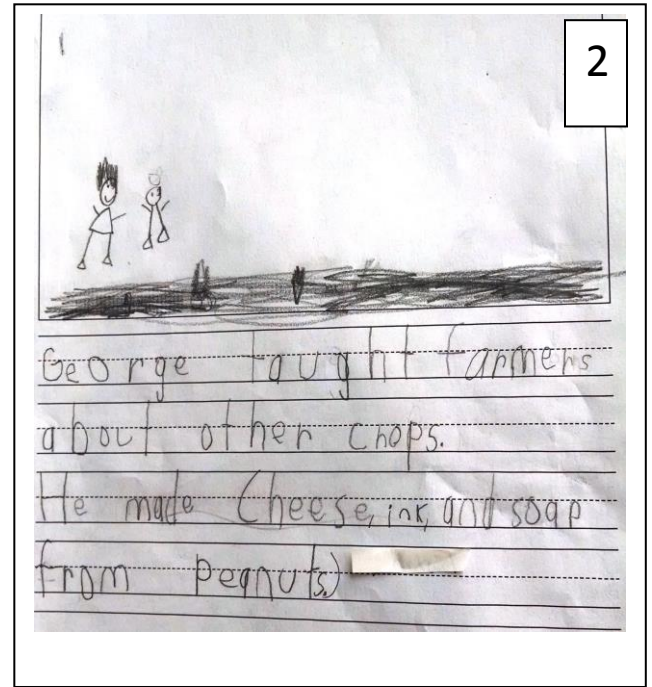 2
George taught farmers
about other crops.
He made Cheese, ink, and soap
from Peanuts.)